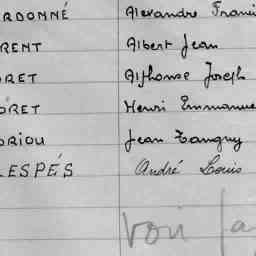 RDONNÉ Alexandre Franci
RENT Albert Jean
ORET Alphonse Joseph
ORET Henri Emmanue
ORIOU Jean Tanguy
LESPÉS André Louis
Voir